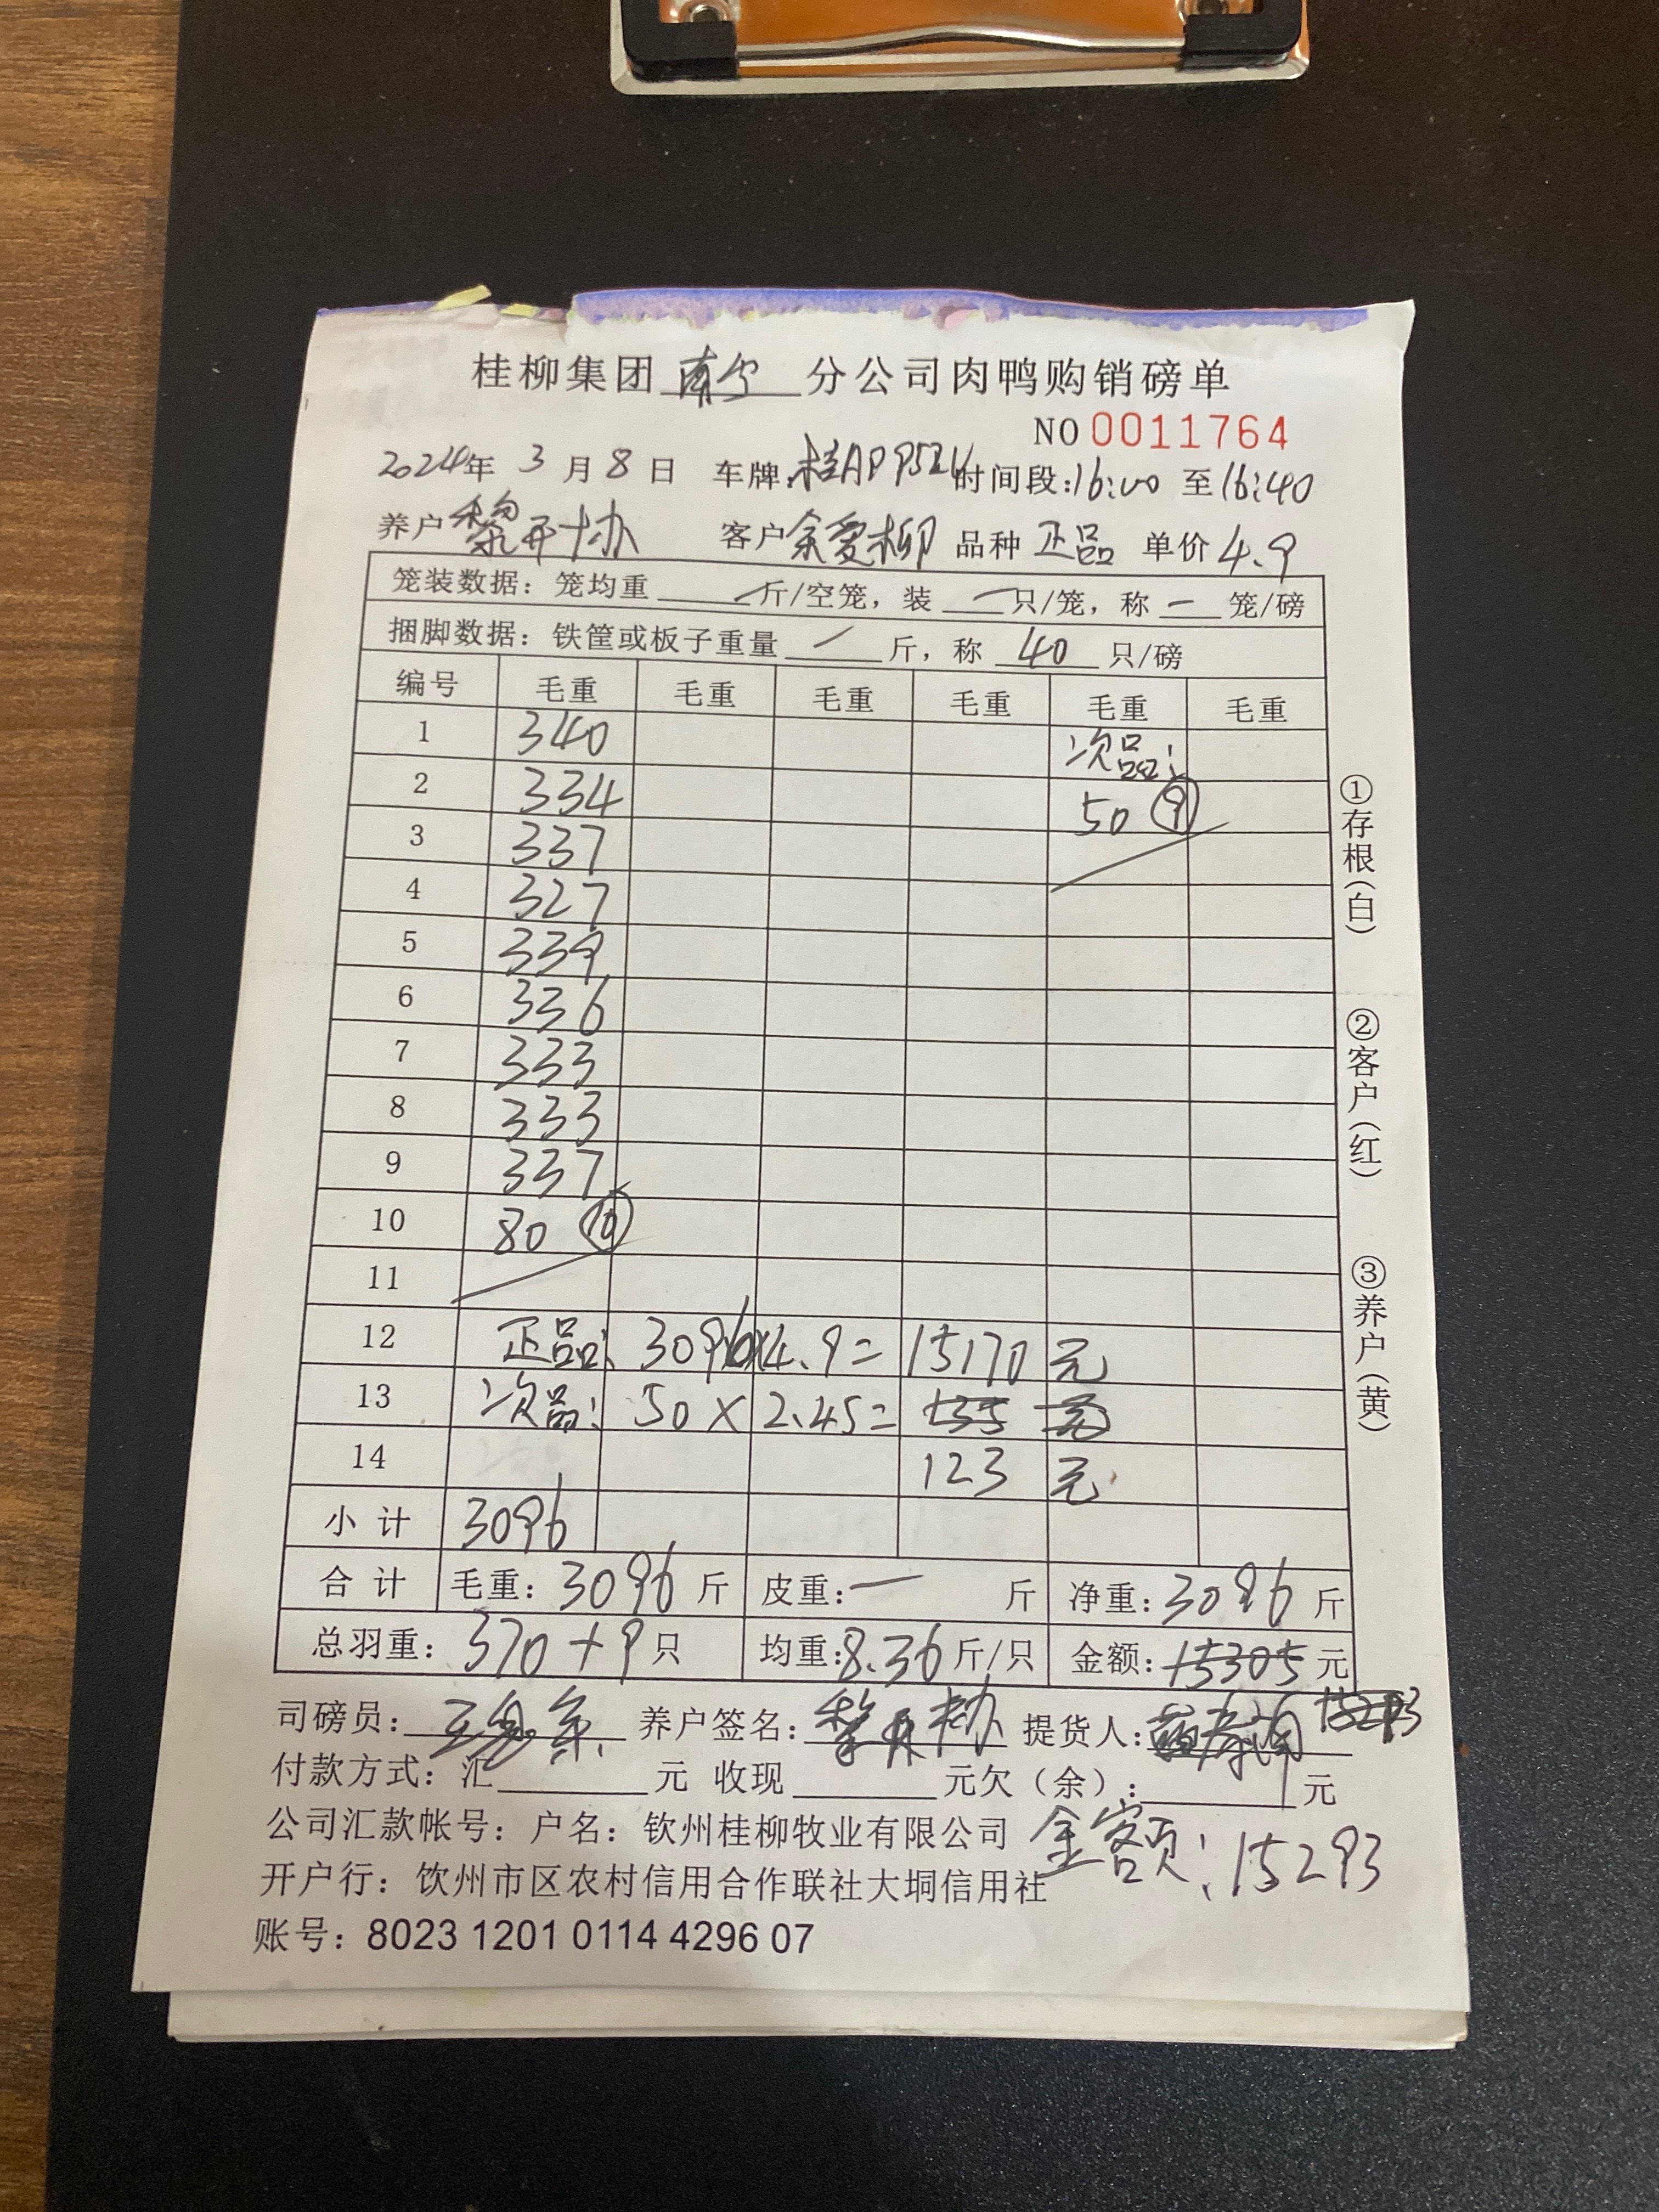 桂柳集团 南宁 分公司肉鸭购销磅单
NO 0011764
2024年 3 月 8 日 车牌:桂AP952U 时间段:16:00 至16:40
养户 黎开协 客户 余爱柳 品种 正品 单价 4.9
笼装数据: 笼均重 — 斤/空笼, 装 — 只/笼, 称 — 笼/磅
捆脚数据: 铁筐或板子重量 / 斤, 称 40 只/磅
编号 毛重 毛重 毛重 毛重 毛重 毛重
1 340 次品:
2 334 50 ⑨
3 337
4 327
5 339
6 336
7 333
8 333
9 337
10 80 ⑩
11
12 正品: 3096×4.9= 15170 元
13 次品: 50 × 2.45= 135 元
14 123 元
小 计 3096
合 计 毛重: 3096 斤 皮重: — 斤 净重: 3096 斤
总羽重: 370 + 9 只 均重:8.36 斤/只 金额: 15305 元
15293
司磅员: 养户签名: 黎开协 提货人:
付款方式: 汇 元 收现 元欠(余): 元
公司汇款帐号: 户名: 钦州桂柳牧业有限公司 金额: 15293
开户行: 钦州市区农村信用合作联社大垌信用社
账号: 8023 1201 0114 4296 07
①存根(白)
②客户(红)
③养户(黄)